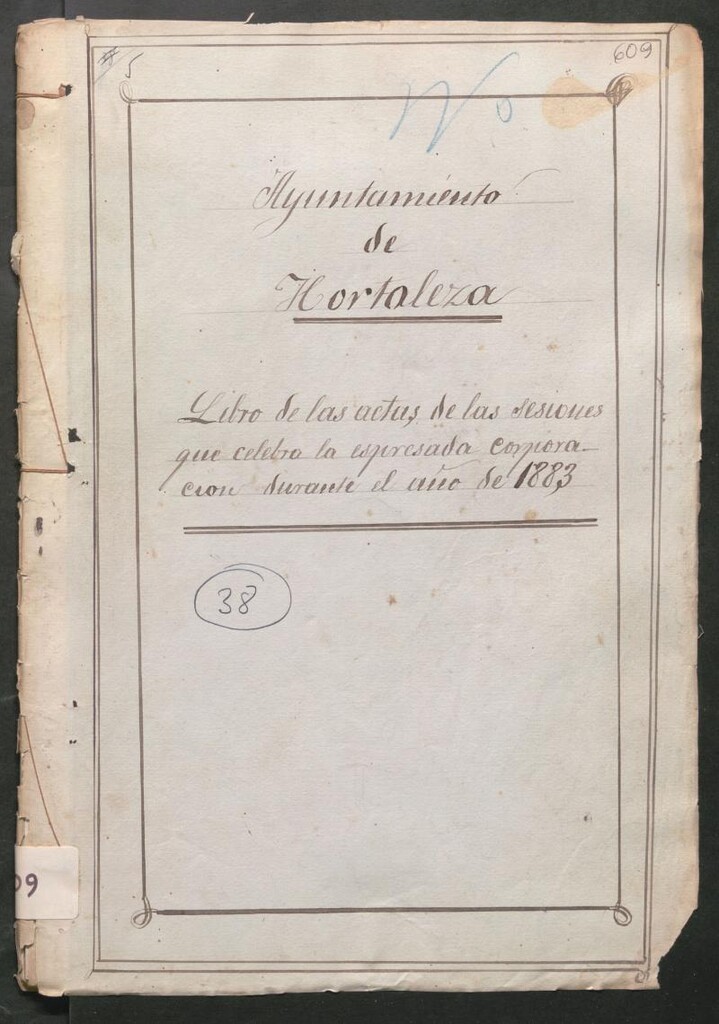 5
609
Nº
Ayuntamiento
de
Hortaleza
Libro de las actas, de las sesiones
que celebra la espresada corpora-
cion durante el año de 1883
38
09